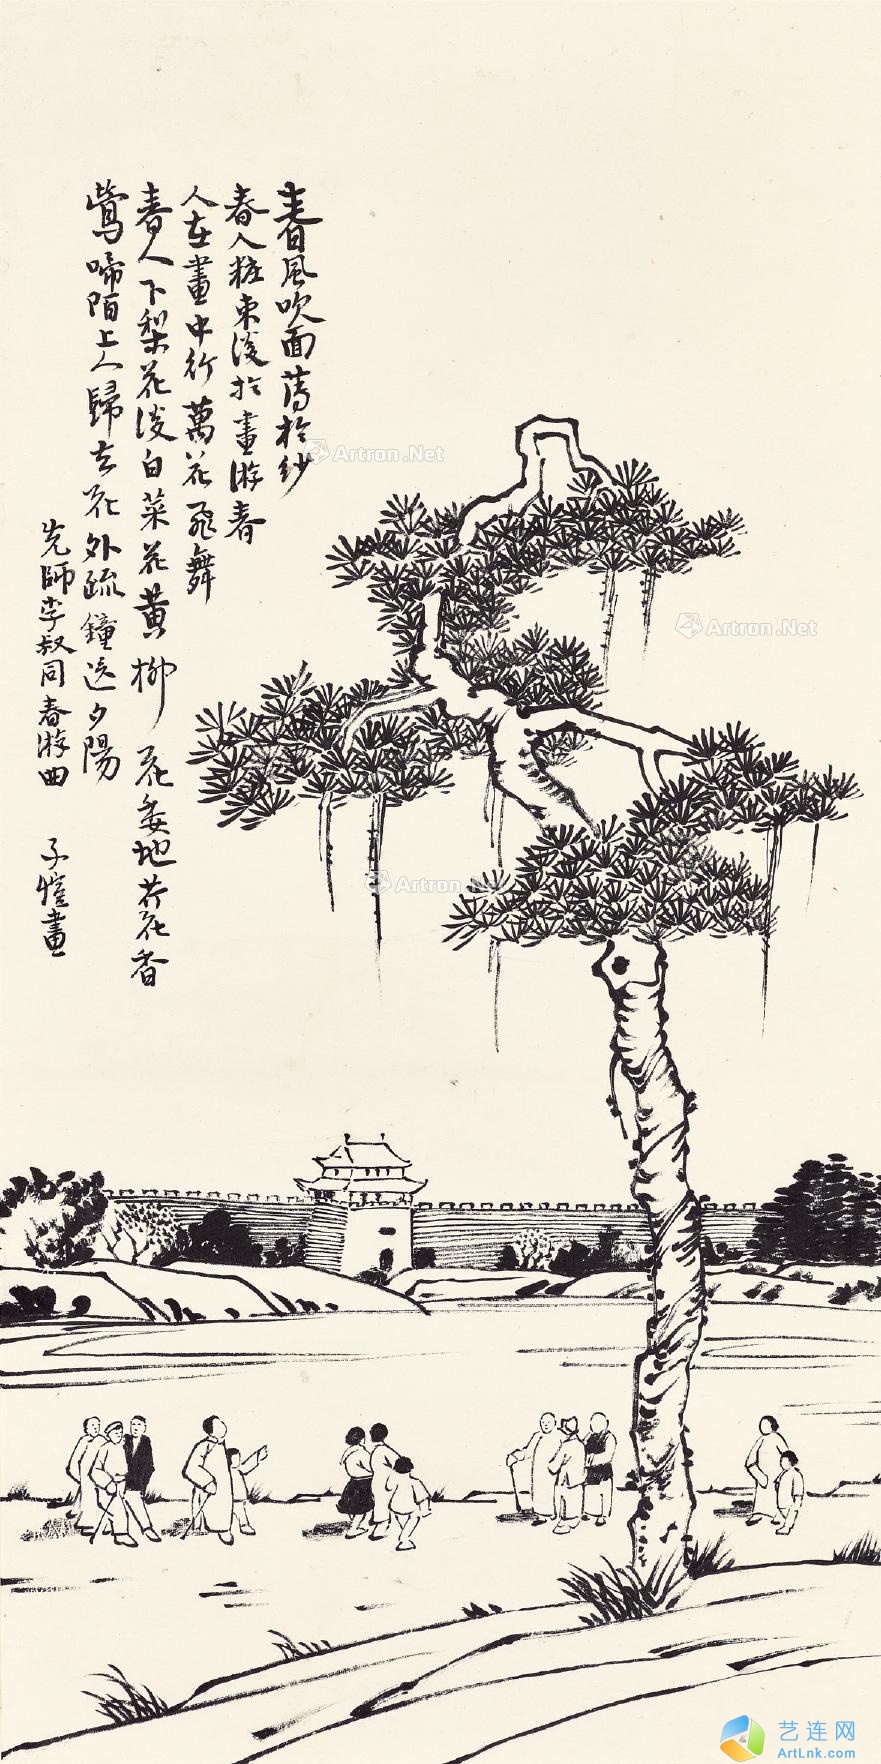 春風吹面薄於紗
春人粧束淡於畫游春
人在畫中行萬花飛舞
春人下梨花淡白菜花黃柳花委地芥花香
鶯啼陌上人歸去花外疏鐘送夕陽
先師李叔同春游曲 子愷畫
Artron.Net
Artron.Net
Artron.Net
艺连网
ArtLnk.com